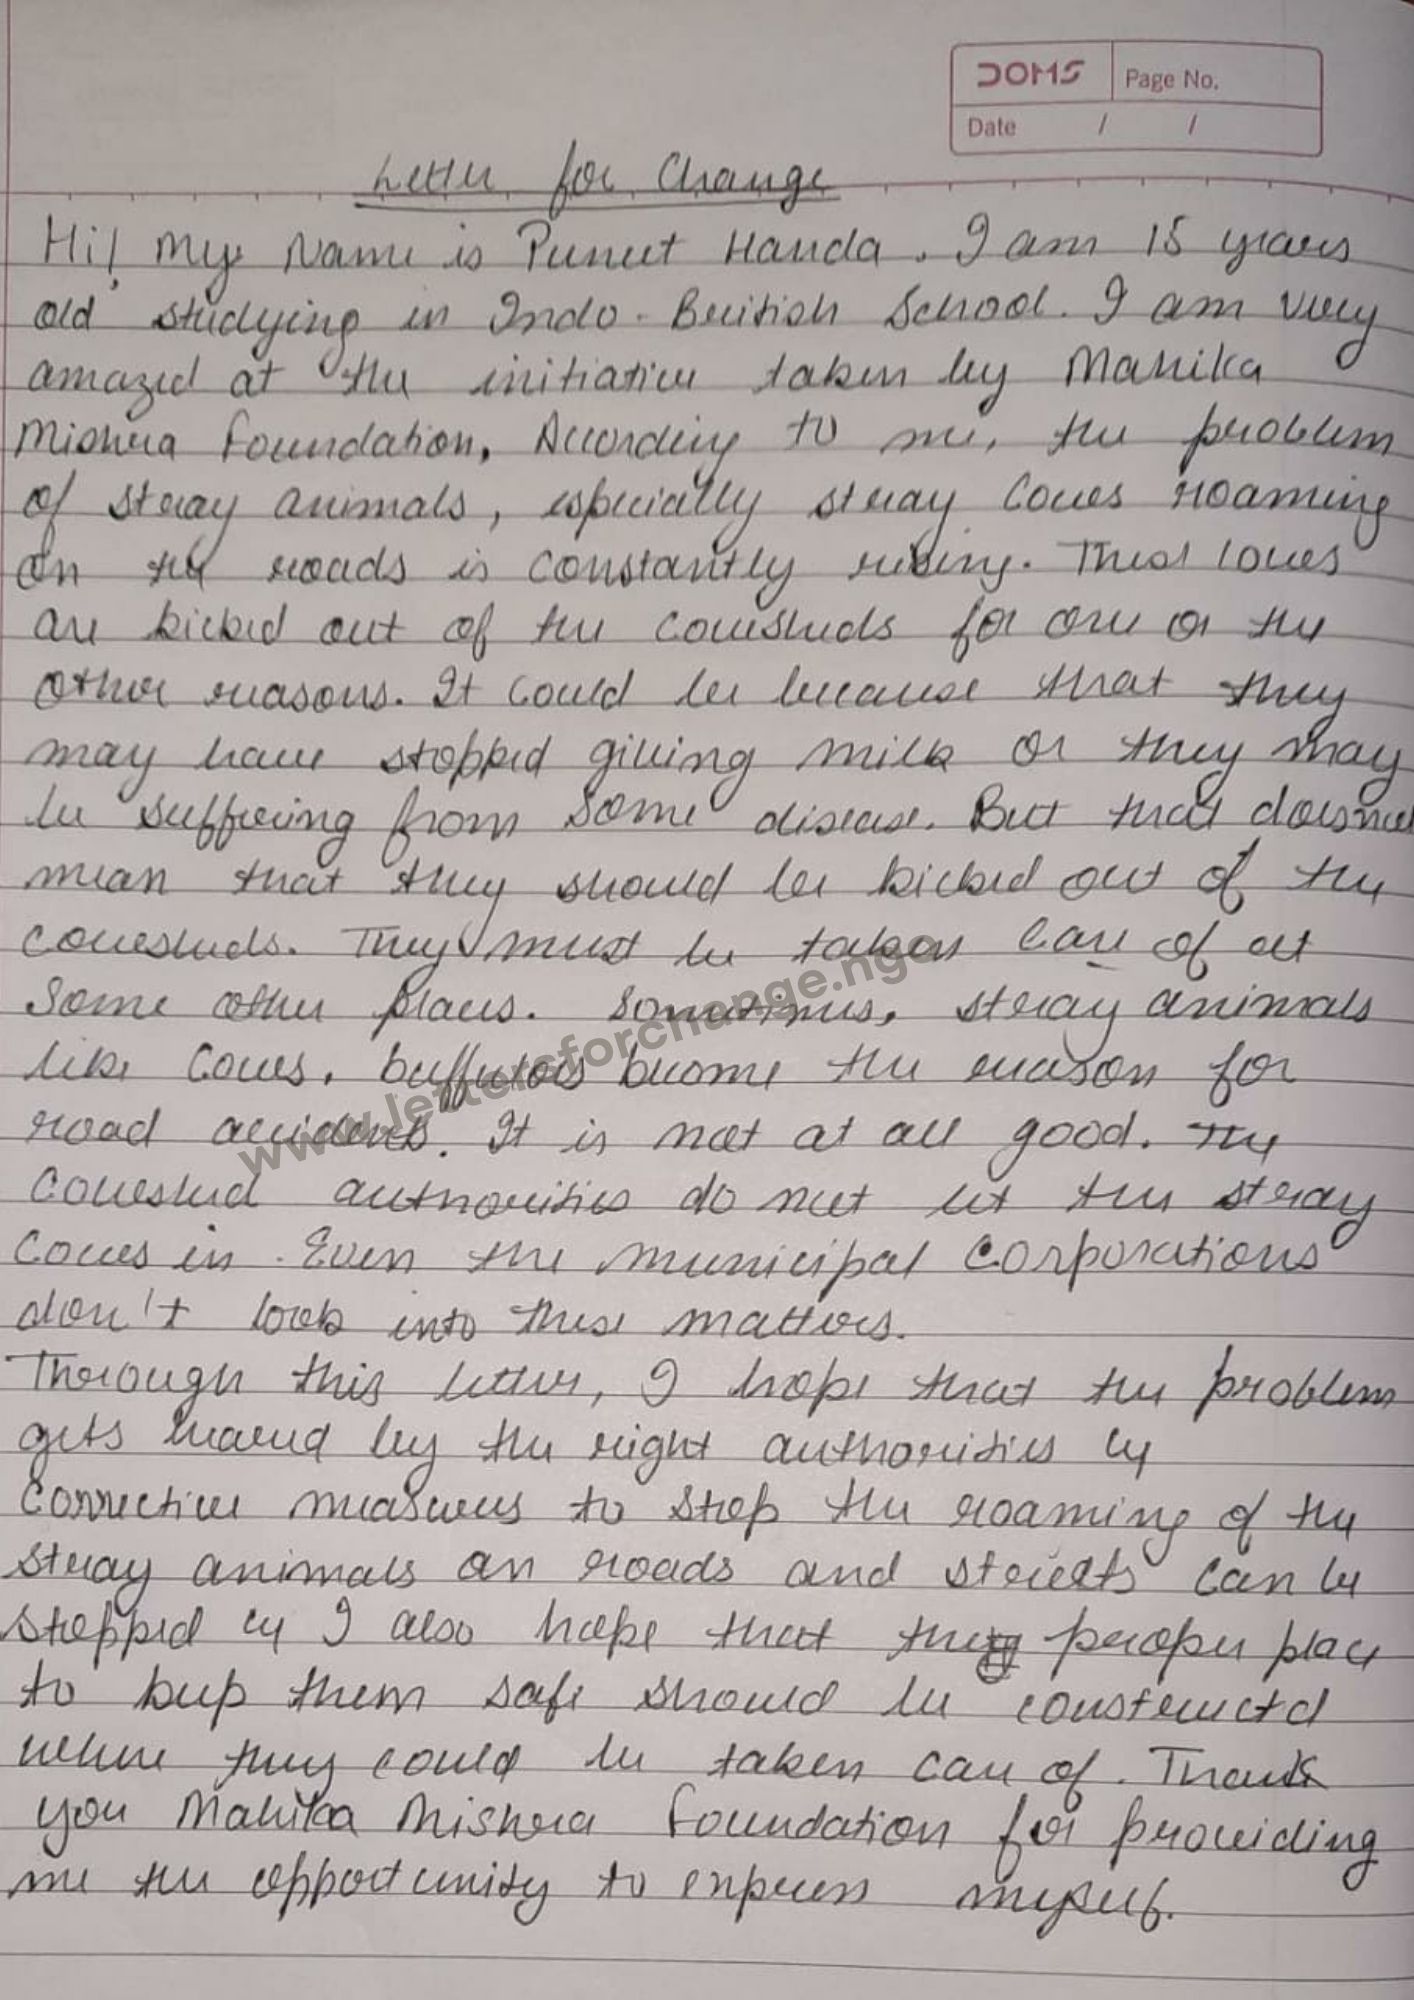 DOMS
Page No.
Date / /
Letter for Change
Hi! My Name is Puneet Handa. I am 15 years
old studying in Indo-British School. I am very
amazed at the initiative taken by Mahika
Mishra Foundation. According to me, the problem
of stray animals, especially stray cows roaming
on the roads is constantly rising. These cows
are kicked out of the cowsheds for one or the
other reasons. It could be because that they
may have stopped giving milk or they may
be suffering from some disease. But that doesnot
mean that they should be kicked out of the
cowsheds. They must be taken care of at
some other places. Sometimes, stray animals
like cows, buffaloes become the reason for
road accidents. It is not at all good. The
cowshed authorities do not let the stray
cows in. Even the municipal corporations
don't look into these matters.
Through this letter, I hope that the problem
gets heared by the right authorities ey
corrective measures to stop the roaming of the
stray animals on roads and streets can be
stopped ey I also hope that proper place
to keep them safe should be constructd
where they could be taken care of. Thank
you Mahika Mishra Foundation for providing
me the opportunity to express myself.
www.lettersforchange.ngo